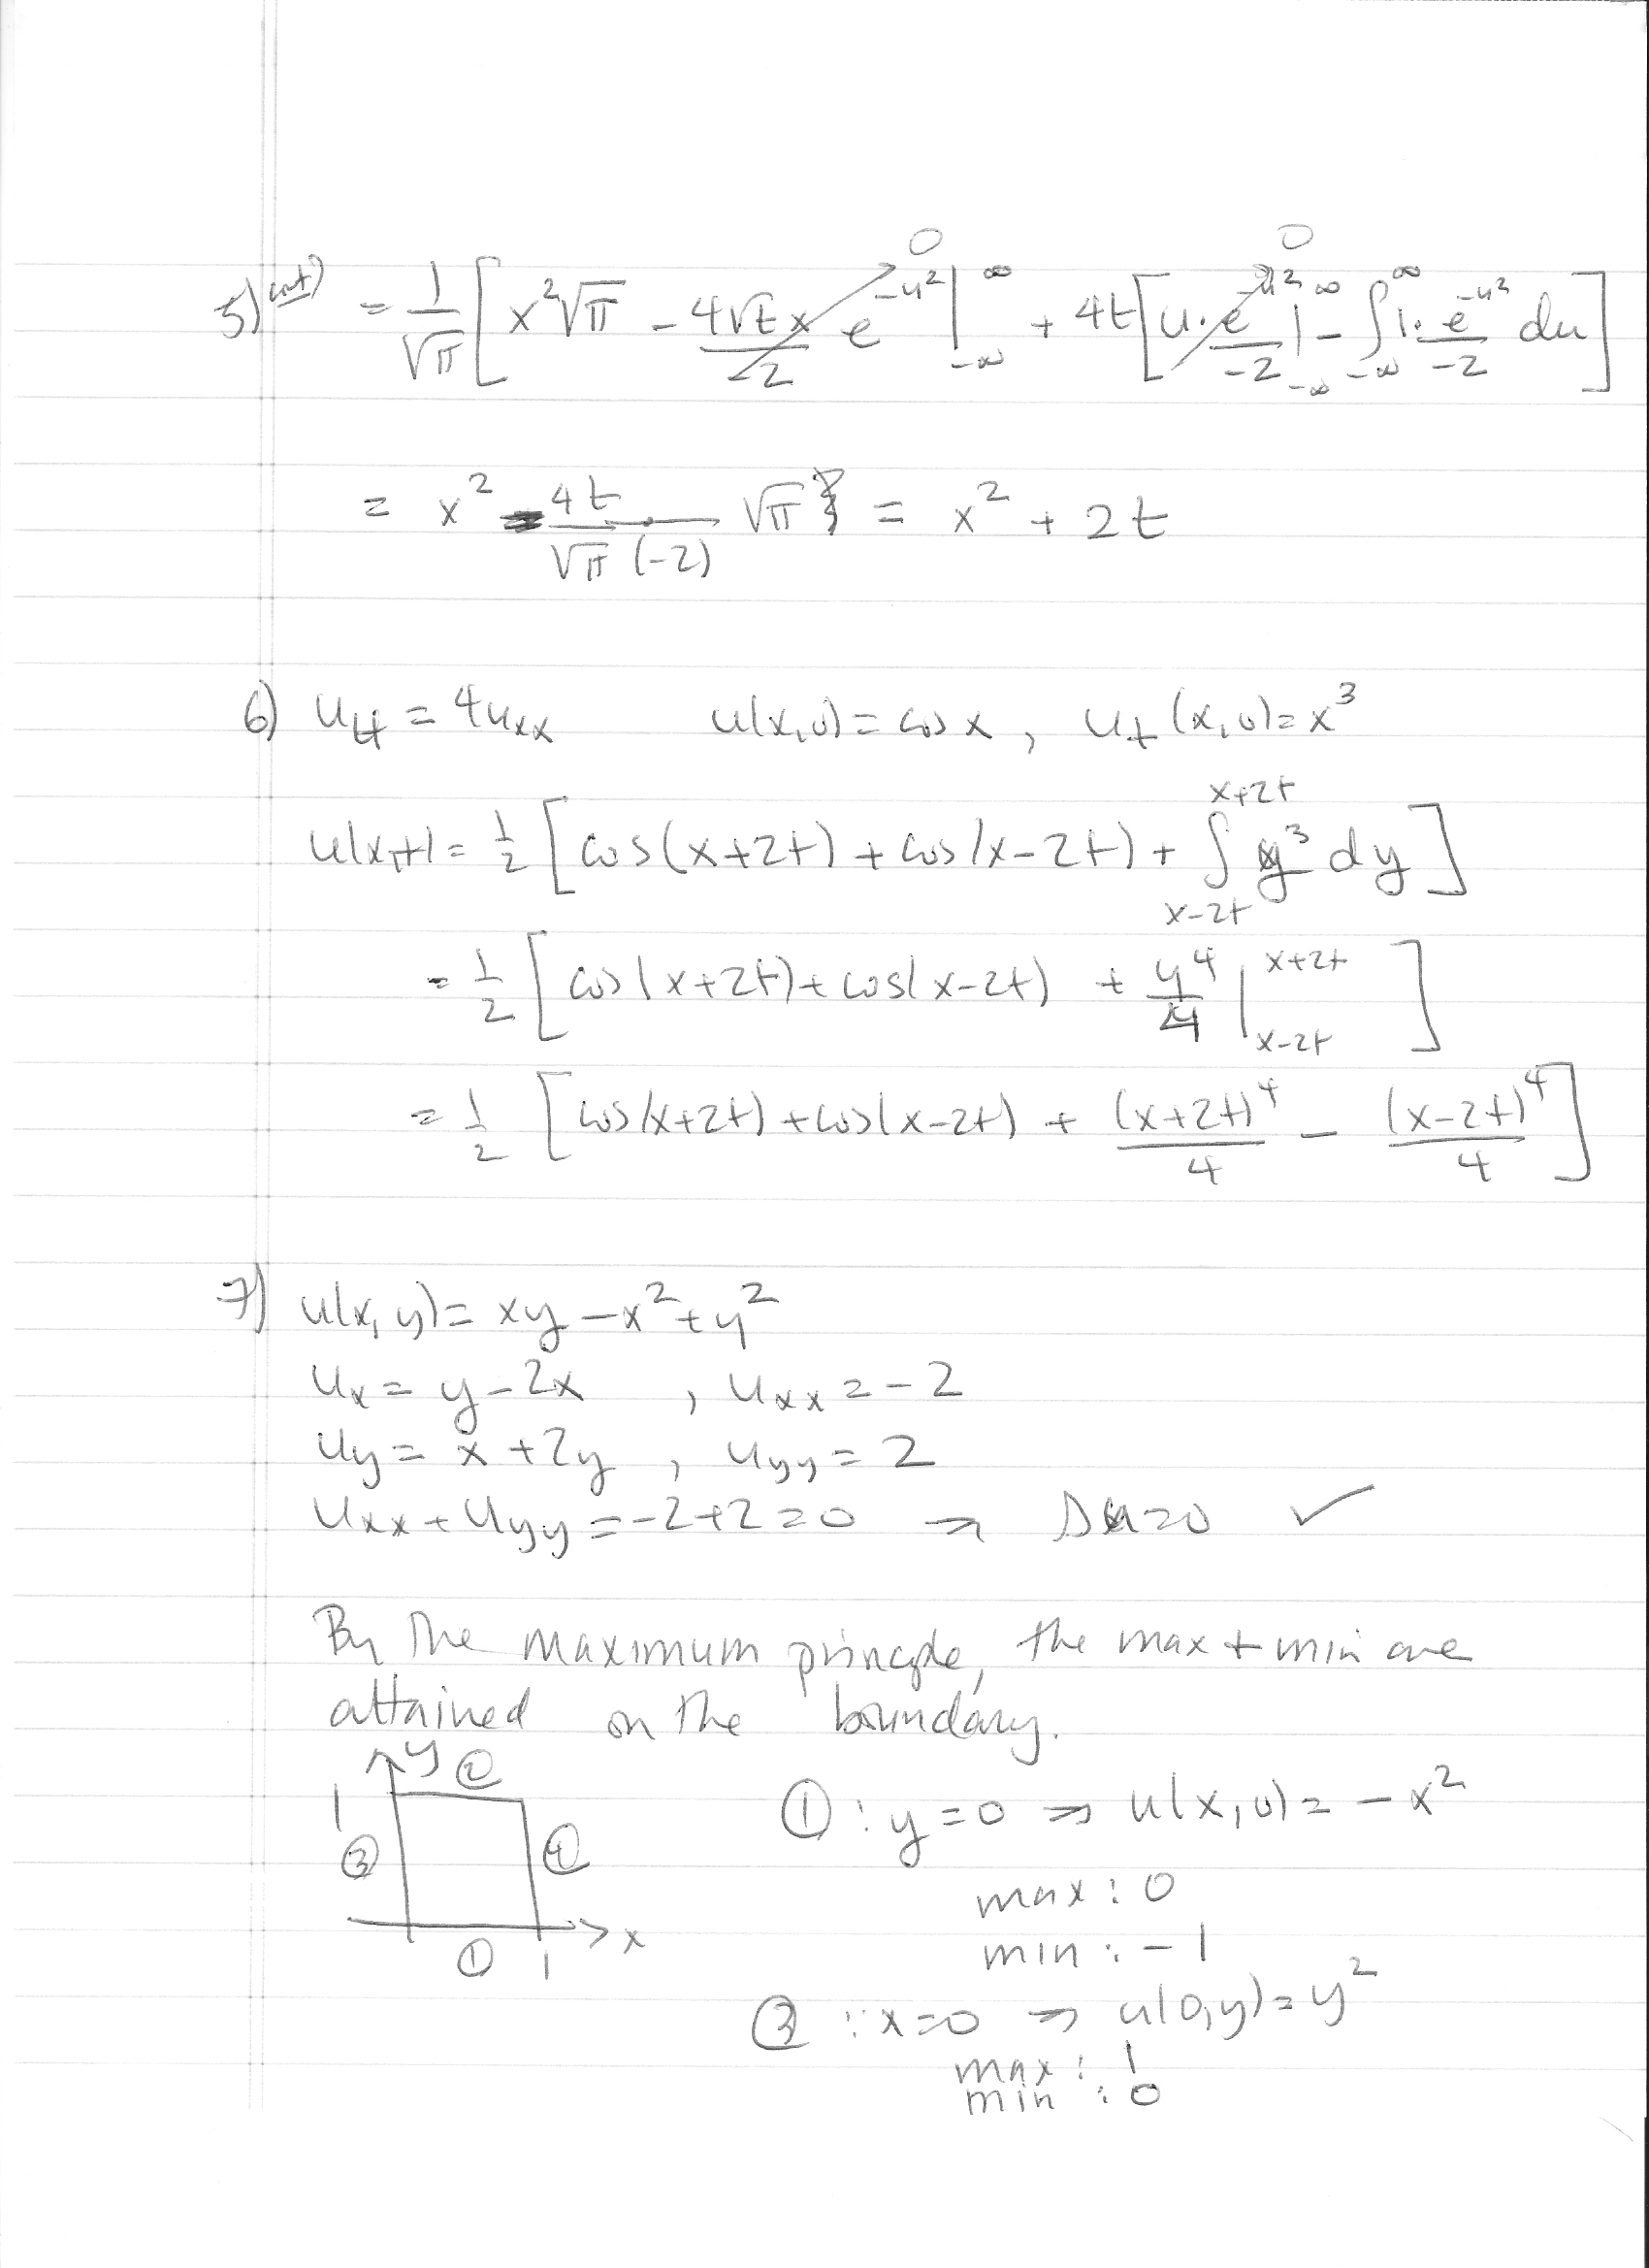 5) cont) = 1/√π [ x²√π - 4√t x/-2 e^{-u²} |_{-∞}^{∞} 0 + 4t [ u·e^{-u²}/-2 |_{-∞}^{∞} 0 - ∫_{-∞}^{∞} 1·e^{-u²}/-2 du ]
= x² - 4t/(√π (-2)) √π = x² + 2t
6) u_tt = 4u_xx u(x,0) = cos x, u_t(x,0) = x³
u(x,t) = 1/2 [ cos(x+2t) + cos(x-2t) + ∫_{x-2t}^{x+2t} y³ dy ]
= 1/2 [ cos(x+2t) + cos(x-2t) + y⁴/4 |_{x-2t}^{x+2t} ]
= 1/2 [ cos(x+2t) + cos(x-2t) + (x+2t)⁴/4 - (x-2t)⁴/4 ]
7) u(x,y) = xy - x² + y²
u_x = y - 2x , u_xx = -2
u_y = x + 2y , u_yy = 2
u_xx + u_yy = -2+2 = 0 → Δu = 0 ✓
By the maximum principle, the max + min are
attained on the boundary.
y ②
1
③ ④
x
① 1
①: y=0 ⇒ u(x,0) = -x²
max: 0
min: -1
③: x=0 ⇒ u(0,y) = y²
max: 1
min: 0